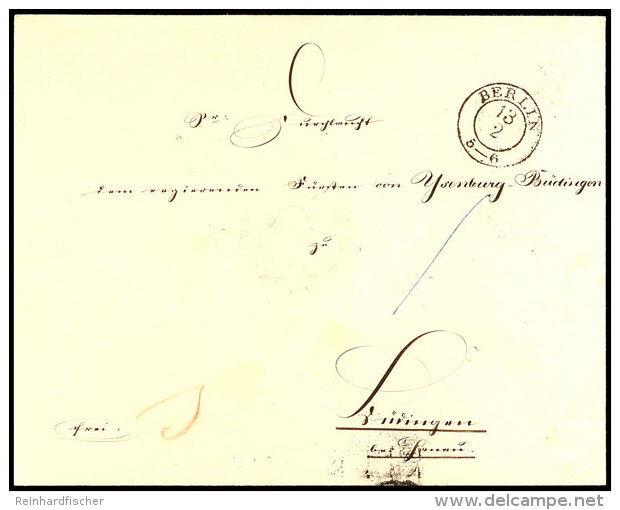 BERLIN
13
2
5–6
Sr: Durchlaucht
dem regierenden Fürsten von Ysenburg-Büdingen
zu
Büdingen
bei Hanau.
frei.
Reinhardfischer
delcampe.net